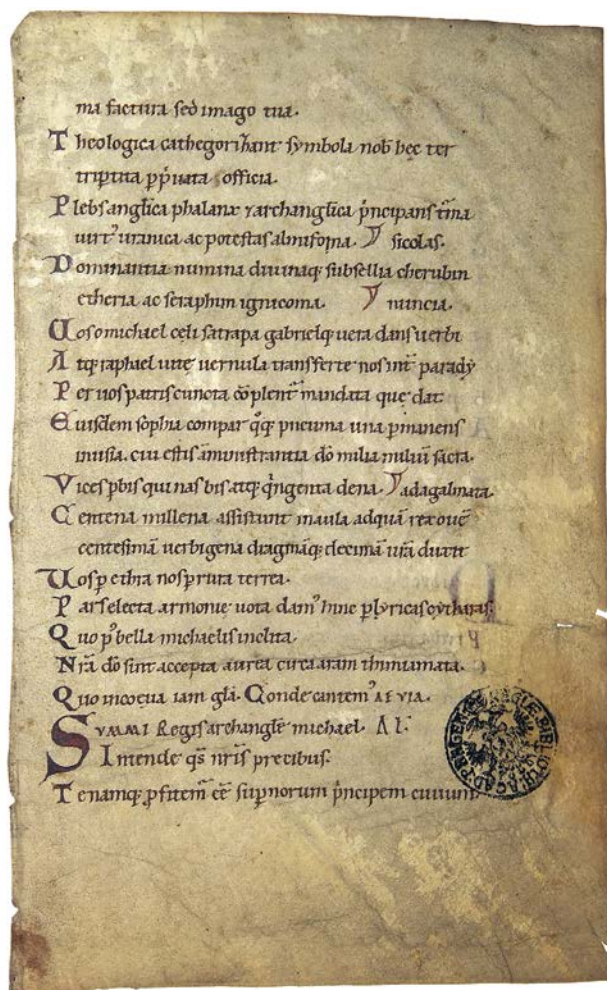 ma factura sed imago tua.
Theologica cathegorizant symbola nob hec ter
tripтita p pͥuata officia.
Plebs anglica phalanx ⁊ archanglica pͥncipans tͥma
uirtꝰ uranica ac potestas almifoma. sicolas.
Dominantia numina diuinaqꝫ subsellia cherubin
etheria ac seraphim ignicoma. nuncia.
Uos o michael celi satrapa gabrielqꝫ uera dans uerbi
Atqꝫ raphael uite uernula transferte nos int parady
Per uos patris cuncta cōplent mandata que dat
Eiusdem sophia compar qͦqꝫ pneuma una pmanens
inusia. cui estis āministrantia dō milia miliū sacra.
Vices pbis quinas bis atqꝫ qͥngenta dena. adagalmata.
Centena millena assistunt inaula adquā rex ouē
centesimā uerbigena dragmāqꝫ decimā urā duxit
Uos p ethra nos p rura terrea.
Pars electa armonie uota damꝰ hinc p lyricas cytharas.
Quo pꝰ bella michaelis inclita.
Nrā dō sint accepta aurea circa aram thimiamata.
Quo incoeua iam gla. Conde cantemꝰ AEVIA.
SVMMI Regis archangle michael. AL
Intende qs nris precibus.
Te namqꝫ pfitemꝰ eē supnorum pͥncipem ciuium